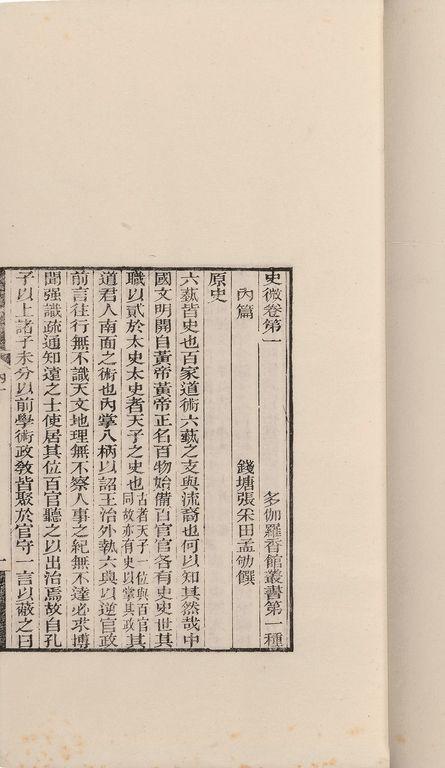 史微卷第一 多伽羅香館叢書第一種
內篇 錢塘張采田孟劬饌
原史
六藝皆史也百家道術六藝之支與流裔也何以知其然哉中
國文明開自黃帝黃帝正名百物始備百官官各有史史世其
職以貳於太史太史者天子之史也古者天子一位與百官其同故亦有史以掌其政其
道君人南面之術也內掌八柄以詔王治外執六典以逆官政
前言往行無不識天文地理無不察人事之紀無不達必求博
聞强識疏通知遠之士使居其位百官聽之以出治焉故自孔
子以上諸子未分以前學術政敎皆聚於官守一言以蔽之曰
內一
一